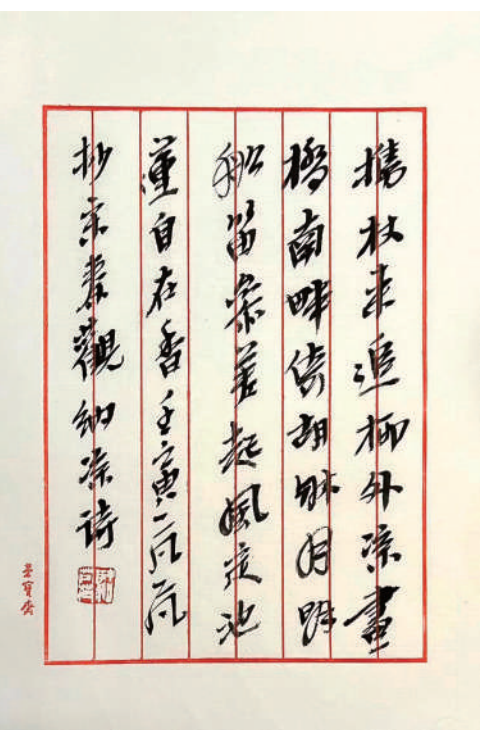 携杖来追柳外凉畫
橋南畔倚胡牀月明
船笛參差起風定池
蓮自在香壬寅
抄宋秦觀納凉詩
榮寶齋